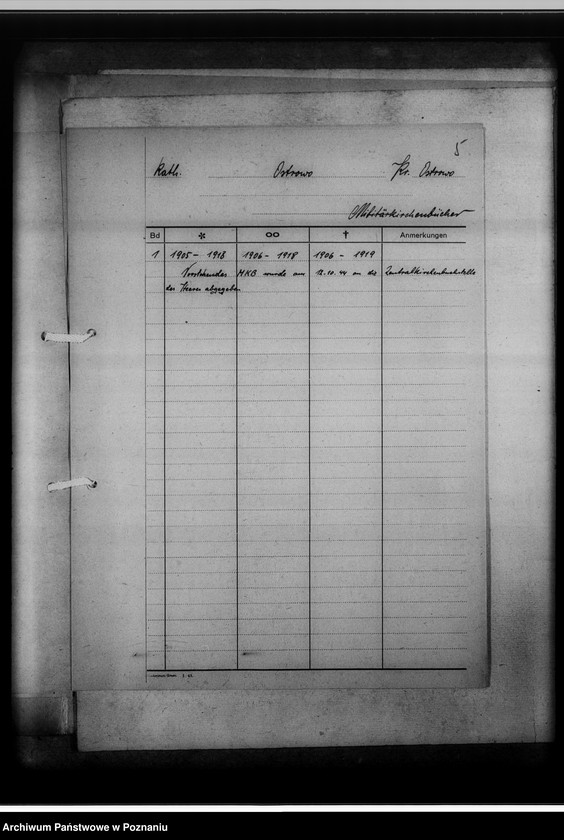 5
Kath. Ostrowo Kr. Ostrowo
Militärkirchenbücher
Bd * ∞ † Anmerkungen
1 1905 - 1918 1906 - 1918 1906 - 1919
Vorstehendes MKB wurde am 12.10.44 an die Zentralkirchenbuchstelle
des Heeres abgegeben
Archiwum Państwowe w Poznaniu